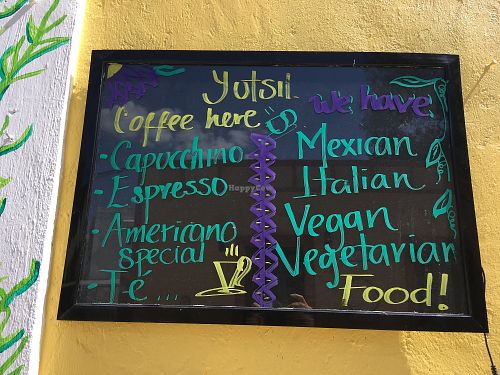 Yutsil
Coffee here
• Capucchino
• Espresso
• Americano
special
• Té...
We have
Mexican
Italian
Vegan
Vegetarian
Food!
HappyCow